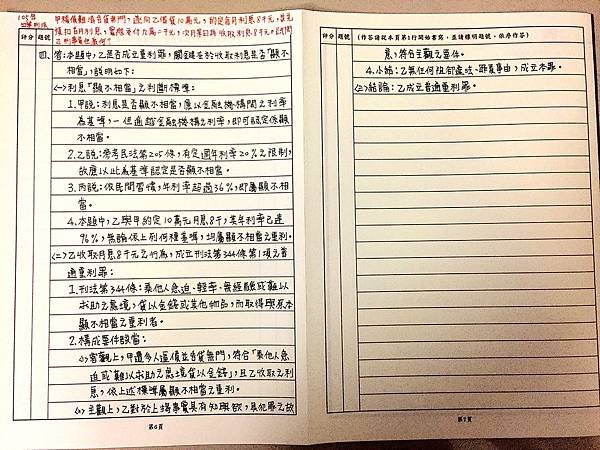 105台
四等刑條
甲積債難填告貸無門，遂向乙借貸10萬元，約定每月利息8千元，並先
預扣首月利息，實際受付九萬二千元，次月果日時收取利息8千元。試問
乙刑事責任為何？
評分 題號
四、答：本題中，乙是否成立重利罪，關鍵在於收取利息是否「顯不
相當」，說明如下：
(一)利息「顯不相當」之判斷標準：
1.甲說：利息是否顯不相當，應以金融機構間之利率
為基準，一但逾越金融機構之利率，即可認定係顯
不相當。
2.乙說：參考民法第205條，有定週年利率20%之限制，
故應以此為基準認定是否顯不相當。
3.丙說：依民間習慣，年利率超過36%，即屬顯不相
當。
4.本題中，乙與甲約定10萬元月息8千，其年利率已達
96%，無論依上列何種基準，均屬顯不相當之重利。
(二)乙收取月息8千元之行為，成立刑法第344條第1項之普
通重利罪：
1.刑法第344條：乘他人急迫、輕率、無經驗或難以
求助之處境，貸以金錢或其他物品，而取得與原本
顯不相當之重利者。
2.構成要件該當：
(1)客觀上，甲遭令人逼債並告貸無門，符合「乘他人急
迫或難以求助之處境貸以金錢」，且乙收取之利
息，依上述標準屬顯不相當之重利。
(2)主觀上，乙對於上揭事實具有知與欲，具犯罪之故
第6頁
評分 題號 (作答請從本頁第1行開始書寫，並請標明題號，依序作答)
意，符合主觀之要件。
4.小結：乙無任何阻卻違法、罪責事由，成立本罪。
(三)結論：乙成立普通重利罪。
第7頁